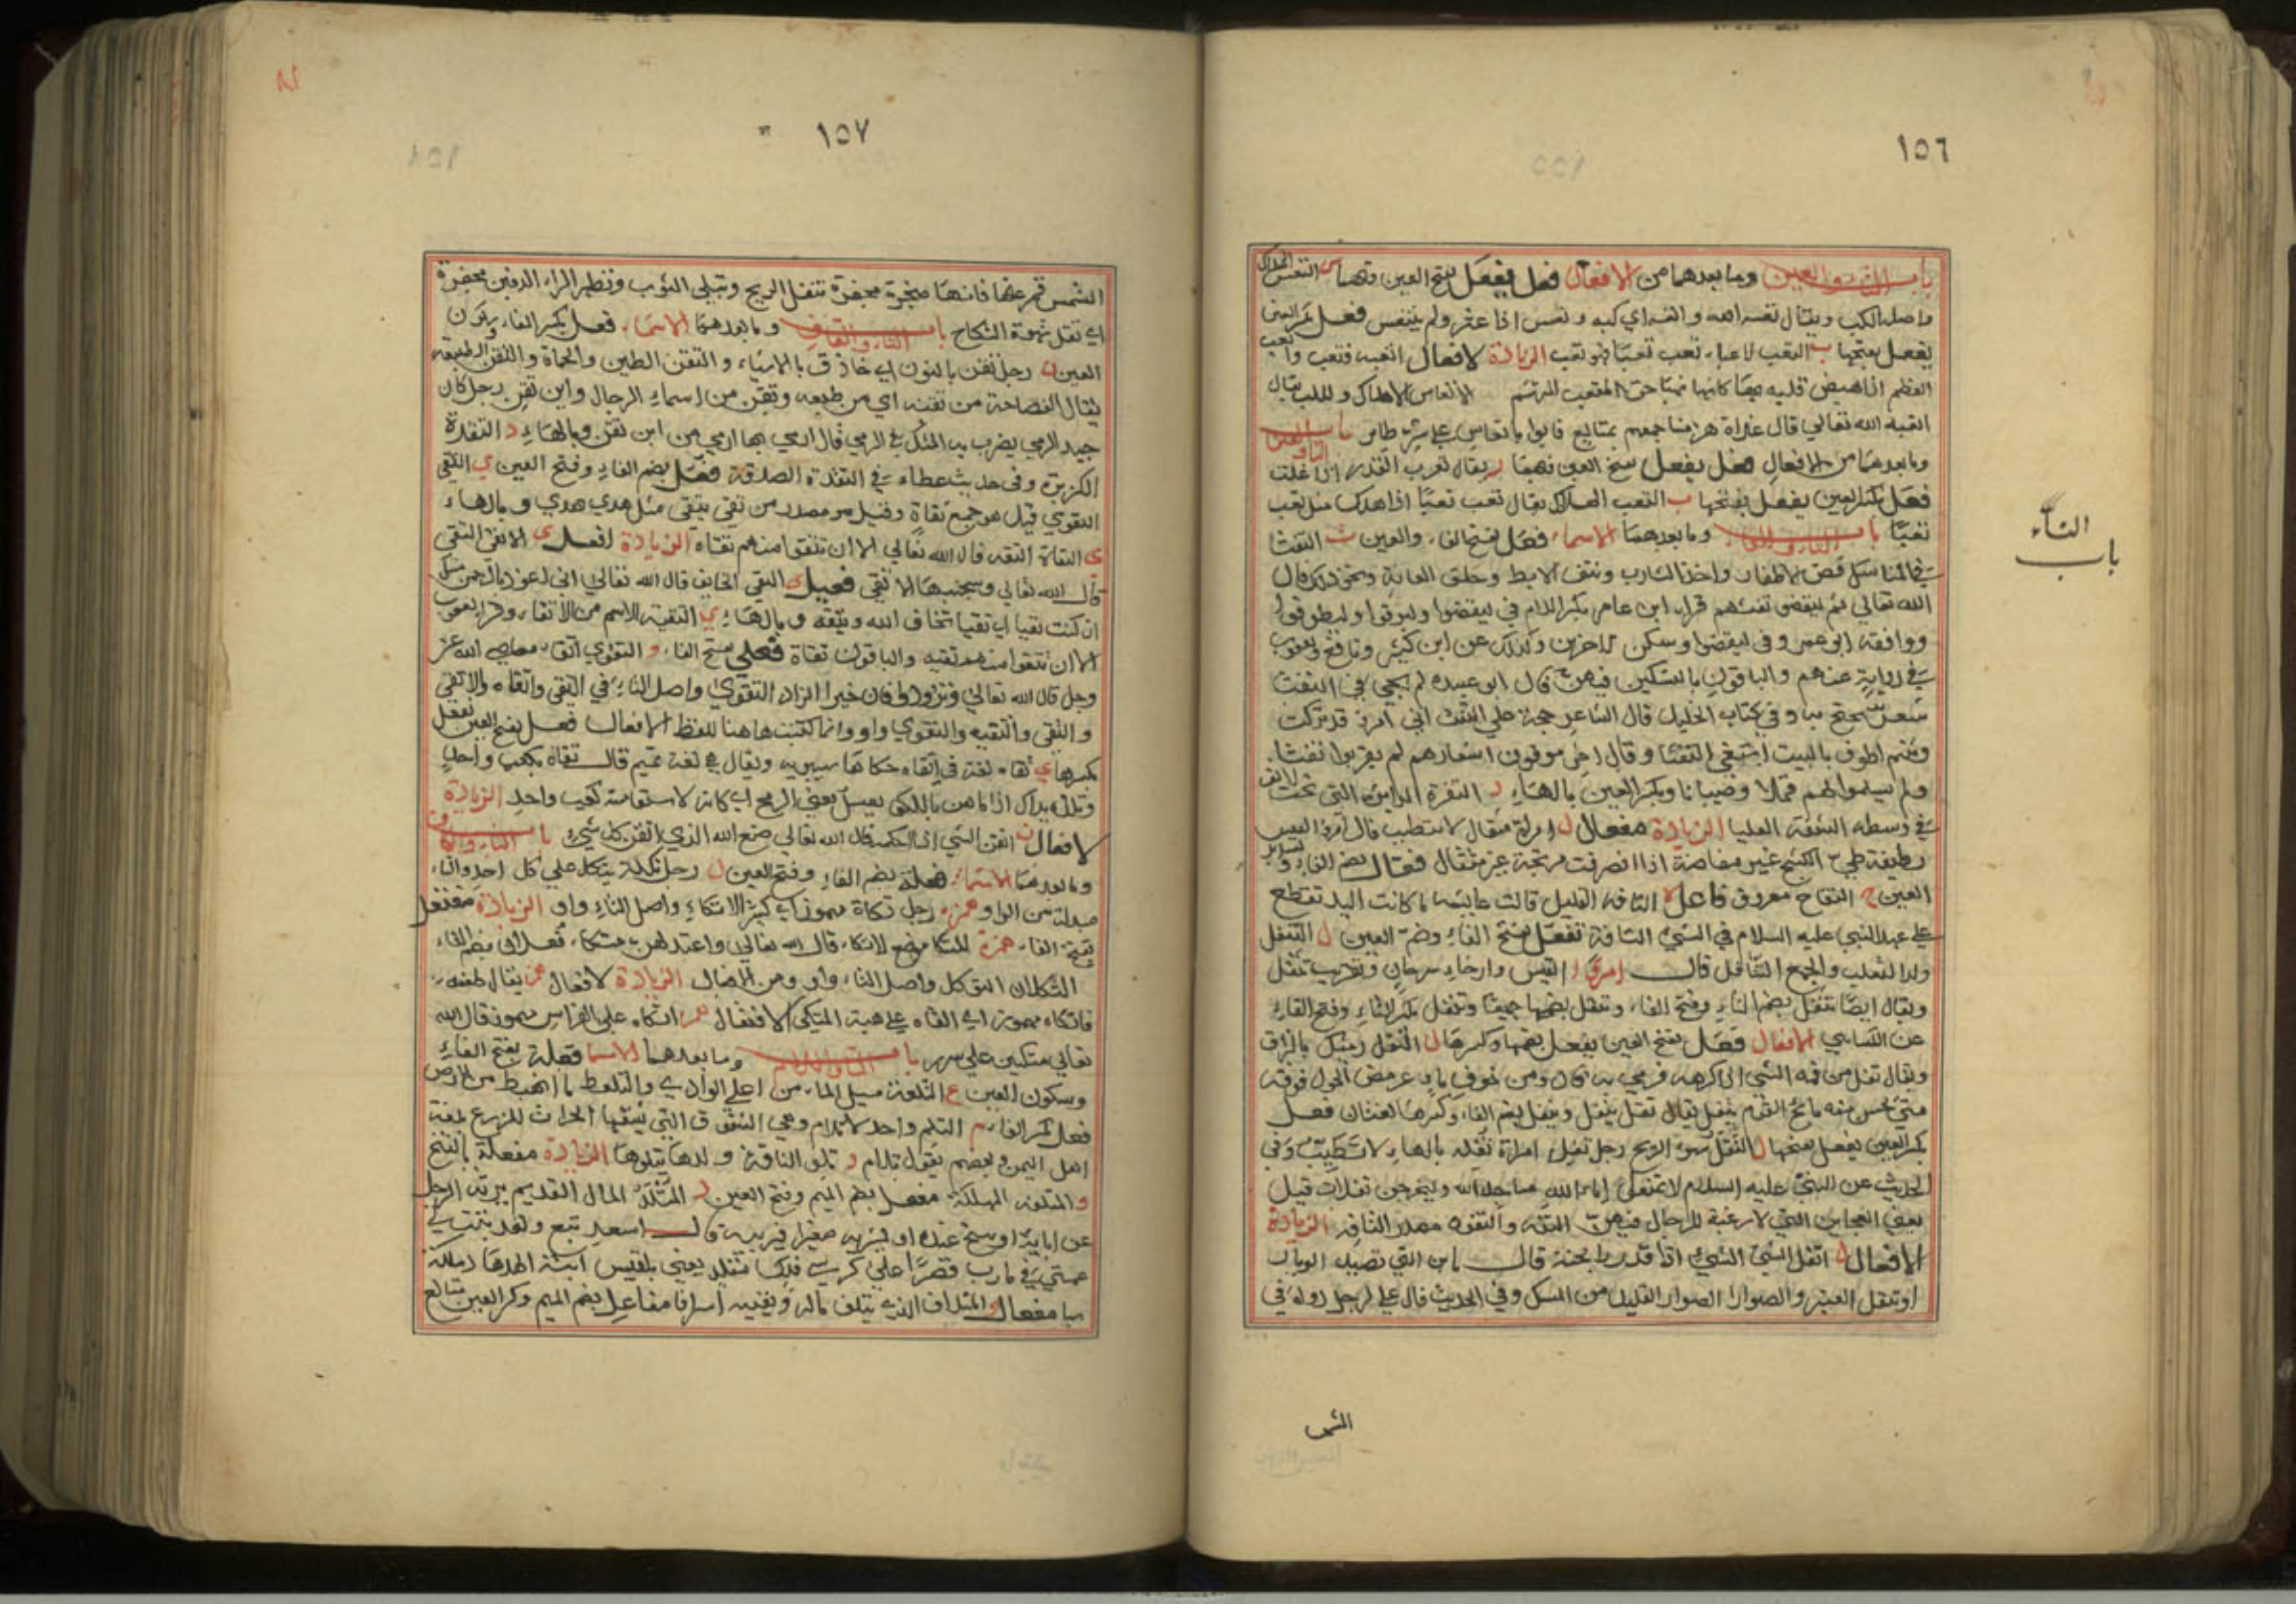 ١٥٦
باب التاء والعين وما بعدهما من الافعال فعل يفعل بفتح العين فيهما س التعس الهلاك
واصله الكب ويقال تعسه الله واتعسه اي كبه وتعس اذا عثر ولم ينتعش فعل بكسر العين
يفعل بفتحها ب التعب الاعياء تعب تعبا فهو تعب الزيادة الافعال اتعبه فتعب واتعب
العظم اذا هيض
اتعسه الله تعالي قال غداة هزمنا جمعهم بمتالع فابوا باتعاس علي شر طاير باب التاء والغين
وما بعدهما من الافعال فعل يفعل بفتح العين فيهما ر يقال تغرت القدر اذا غلت
فعل بكسر العين يفعل بفتحها ب التغب الهلاك يقال تغب تغبا اذا هلك مثل تعب
تغبا باب التاء والفاء وما بعدهما الاسماء فعل بفتح الفاء والعين ث التفث
في المناسك قص الاظفار واخذ الشارب ونتف الابط وحلق العانة ونحو ذلك قال
الله تعالي ثم ليقضوا تفثهم قراء ابن عامر بكسر اللام في ليقضوا وليوفوا وليطوفوا
ووافقه ابو عمرو في ليقضوا وسكن الاخرين وكذلك عن ابن كثير ونافع ويعقوب
في رواية عنهم والباقون بالتسكين فيهن قال ابو عبيده لم يجئ في التفث
شعر يحتج به وفي كتاب الخليل قال الشاعر حجة علي التفث اني امرؤ قد تركت
ولم يسلوا لهم قملا وصيبانا وبكسر العين بالهاء ر التفرة الدايرة التي تحت الانف
في وسط الشفة العليا الزيادة مفعال ل امراة متفال لا تتطيب قال امرؤ القيس
لطيفة طي الكشح غير مفاضة اذا انصرفت مرتجة غير متفال فعال بضم الفاء وتشديد
العين ح التفاح معروف فاعل ه التافه القليل قالت عايشه ما كانت اليد تقطع
علي عهد النبي عليه السلام في الشئ التافه تفعل بفتح الفاء وضم العين ل التتفل
ولد الثعلب والجمع التتافل قال امرؤ القيس وارخاء سرحان وتقريب تتفل
ويقال ايضا تتفل بضم التاء وفتح الفاء وتتفل بضمهما جميعا وتتفل بكسر التاء وفتح الفاء
عن الكسايي الافعال فعل بفتح العين يفعل بضمها وكسرها ل التفل رميك بالبزاق
ويقال تفل من فمه الشئ اذا كرهه فرمي به قال ومن جوف ماء عرمض الحول فوقه
متي يحس منه مائح القوم يتفل يقال تفل يتفل ويتفل بضم الفاء وكسرها لغتان فعل
بكسر العين يفعل بفتحها ل التفل سوء الريح رجل تفل وامراة تفله بالهاء لا تتطيب وفي
الحديث عن النبي عليه السلام لا تمنعوا اماء الله مساجد الله وليخرجن تفلات قيل
يعني العجايز التي لا رغبة للرجال فيهن ه التفه والتفوه مصدر التافه الزيادة
الافعال ل اتفل الشئ الشئ اذا قدر رايحته قال يابن التي تصيد الوبارا
وتتفل العنبر والصوارا الصوار القليل من المسك وفي الحديث قال علي لرجل راه في
الشمس
التاء
باب
١٥٧
الشمس قم عنها فانها مبخرة مجفرة تتفل الريح وتبلي الثوب وتظهر الداء الدفين مجفرة
اي تقل شهوة النكاح باب التاء والقاف وما بعدهما الاسماء فعل بكسر الفاء وسكون
العين ن رجل تقن بالنون اي حاذق بالاشياء والتقن الطين والحماة والتقن الطبيعة
يقال الفصاحة من تقنه اي من طبعه وتقن من اسماء الرجال وابن تقن رجل كان
جيد الرمي يضرب به المثل في الرمي قال ارمي بها ارمي من ابن تقن وبالهاء د التقدة
الكزبرة وفي حديث عطاء في التقدة الصدقة فعل بضم الفاء وفتح العين ي التقي
التقوي قيل هو جمع تقاة وقيل هو مصدر من تقي يتقي مثل هدي هدي وبالهاء
ي التقاة التقيه قال الله تعالي الا ان تتقوا منهم تقاه الزيادة افعل ي الاتقي التقي
قال الله تعالي وسيجنبها الاتقي فعيل ي التقي الخايف قال الله تعالي اني اعوذ بالرحمن منك
ان كنت تقيا اي تقيا تخاف الله وتتقه وبالهاء ي التقية الاسم من الاتقاء وقرا يعقوب
الا ان تتقوا منهم تقيه والباقون تقاة فعلي بفتح الفاء و التقوي اتقاء معاصي الله عز
وجل قال الله تعالي وتزودوا فان خير الزاد التقوي واصل التاء في التقي واتقاه والاتقي
والتقي والتقيه والتقوي واو وانما كتبت هاهنا للفظ الافعال فعل بفتح العين يفعل
بكسرها ي تقاه لغة في اتقاه حكاها سيبويه ويقال هي لغة تميم قال تقاك بكعب واحد
وتلذه يداك اذا ما هز بالكف يعسل يعني الرمح اي كانه لاستقامته كعب واحد الزيادة
الافعال ن اتقن الشئ اذا احكمه قال الله تعالي صنع الله الذي اتقن كل شيء باب التاء والكاف
وما بعدهما الاسماء فعلة بضم الفاء وفتح العين ل رجل تكلة يتكل علي كل احد والتاء
مبدلة من الواو همزة رجل تكاة مهموز اي كثير الاتكاء واصل التاء واو الزيادة مفتعل
بفتح الفاء همزة المتكا موضع الاتكاء قال الله تعالي واعتدت لهن متكاء فعلان بضم الفاء
ل التكلان التوكل واصل التاء واو ومن الافعال الزيادة الافعال همزة يقال طعنه
فاتكاه مهموز اي القاه علي هيئة المتكي الافتعال همزة اتكاء علي الفراش مهموز قال الله
تعالي متكين علي سرر باب التاء واللام وما بعدهما الاسما فعلة بفتح الفاء
وسكون العين ع التلعة مسيل الماء من اعلي الوادي والتلعة ما انهبط من الارض
فعل بكسر الفاء م التلم واحد الاتلام وهي الشقوق التي يشقها الحراث للزرع بلغة
اهل اليمن وبعضهم يقول تلام و تلو الناقة ولدها يتلوها الزيادة مفعلة بالفتح
ف المتلفه المهلكة مفعل بضم الميم وفتح العين د المتلد المال القديم يرثه الرجل
عن ابايه او ينتج عنده او يشتريه صغيرا فيربيه قال اسعد تبع ولقد بنت لي
عمتي في مارب قصرا علي كرسي ملك متلد يعني بلقيس ابنة الهدهاد ملكة
سبا مفعال ف المتلاف الذي يتلف ماله ويفنيه اسرافا مفاعل بضم الميم وكسر العين متالع